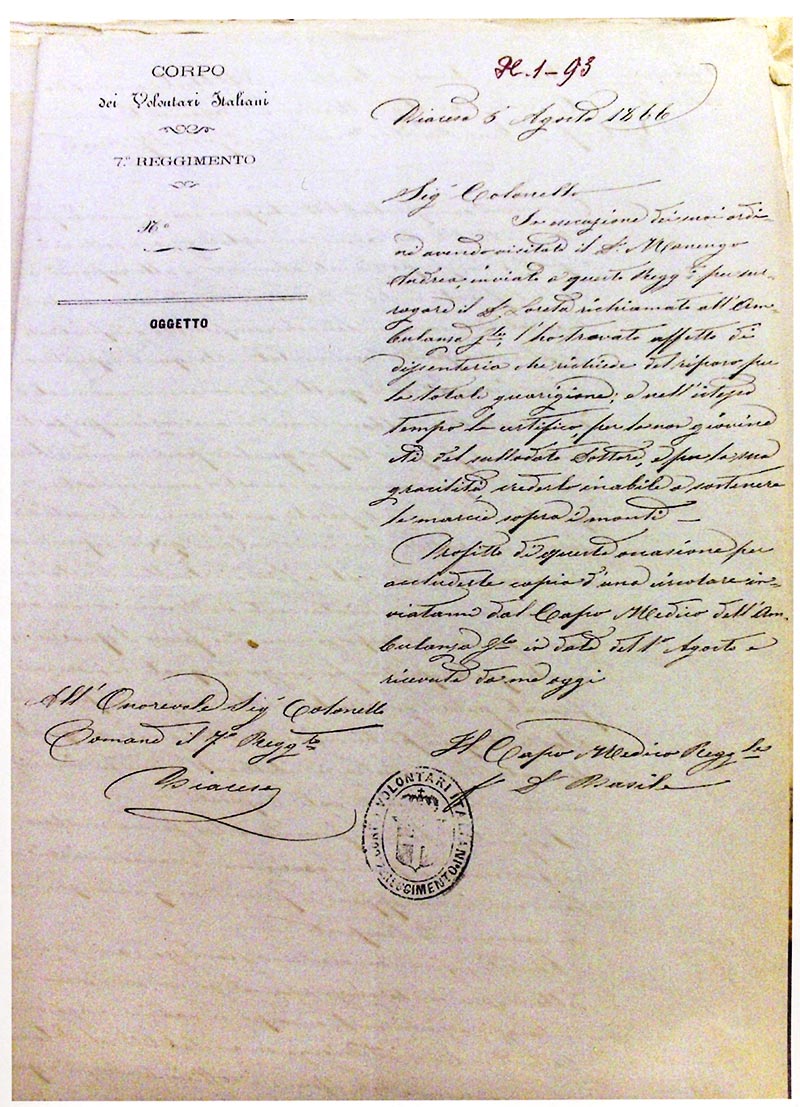 CORPO
dei Volontari Italiani
7.º REGGIMENTO
N.º
OGGETTO
H.1-93
5 Agosto 1866
Sig.r Colonello
In esecuzione dei suoi ordi-
ni avendo visitato il Dr.
Andrea, inviato a questo Regg.to per sur-
rogare il Dr. Loreta richiamato all'Am-
bulanza Gle, l'ho trovato affetto di
dissenteria che richiede del riposo per
la totale guarigione; e nell'istesso
tempo la certifico, per la non giovine
età del sullodato Dottore, e per la sua
gracilità, crederlo inabile a sostenere
le marcie sopra i monti —
Profitto di questa occasione per
accluderle copia d'una circolare in-
viatami dal Capo Medico dell'Am-
bulanza Gle in data del 1º Agosto e
ricevuta da me oggi
All' Onorevole Sig.r Colonello
Comand. il 7.º Regg.to
Il Capo Medico Regg.le
Dr Basile
CORPO VOLONTARI ITALIANI
7 REGGIMENTO